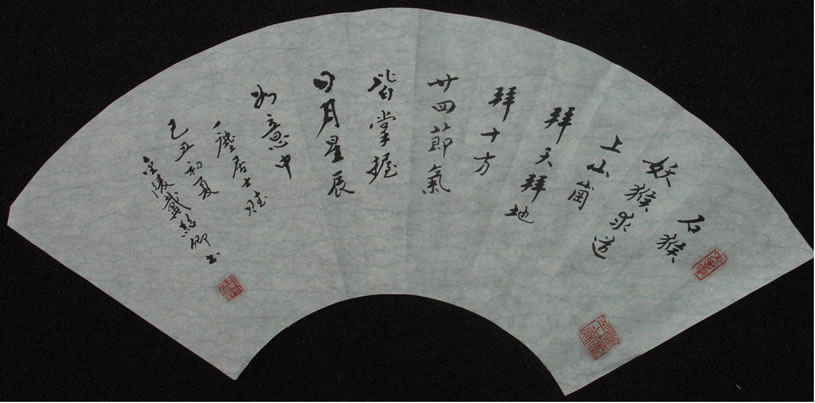 石猴
妖猴求道
上山崗
拜天拜地
拜十方
廿四節氣
皆掌握
日月星辰
如意中
居士
己丑初夏
金陵戴紹卿書